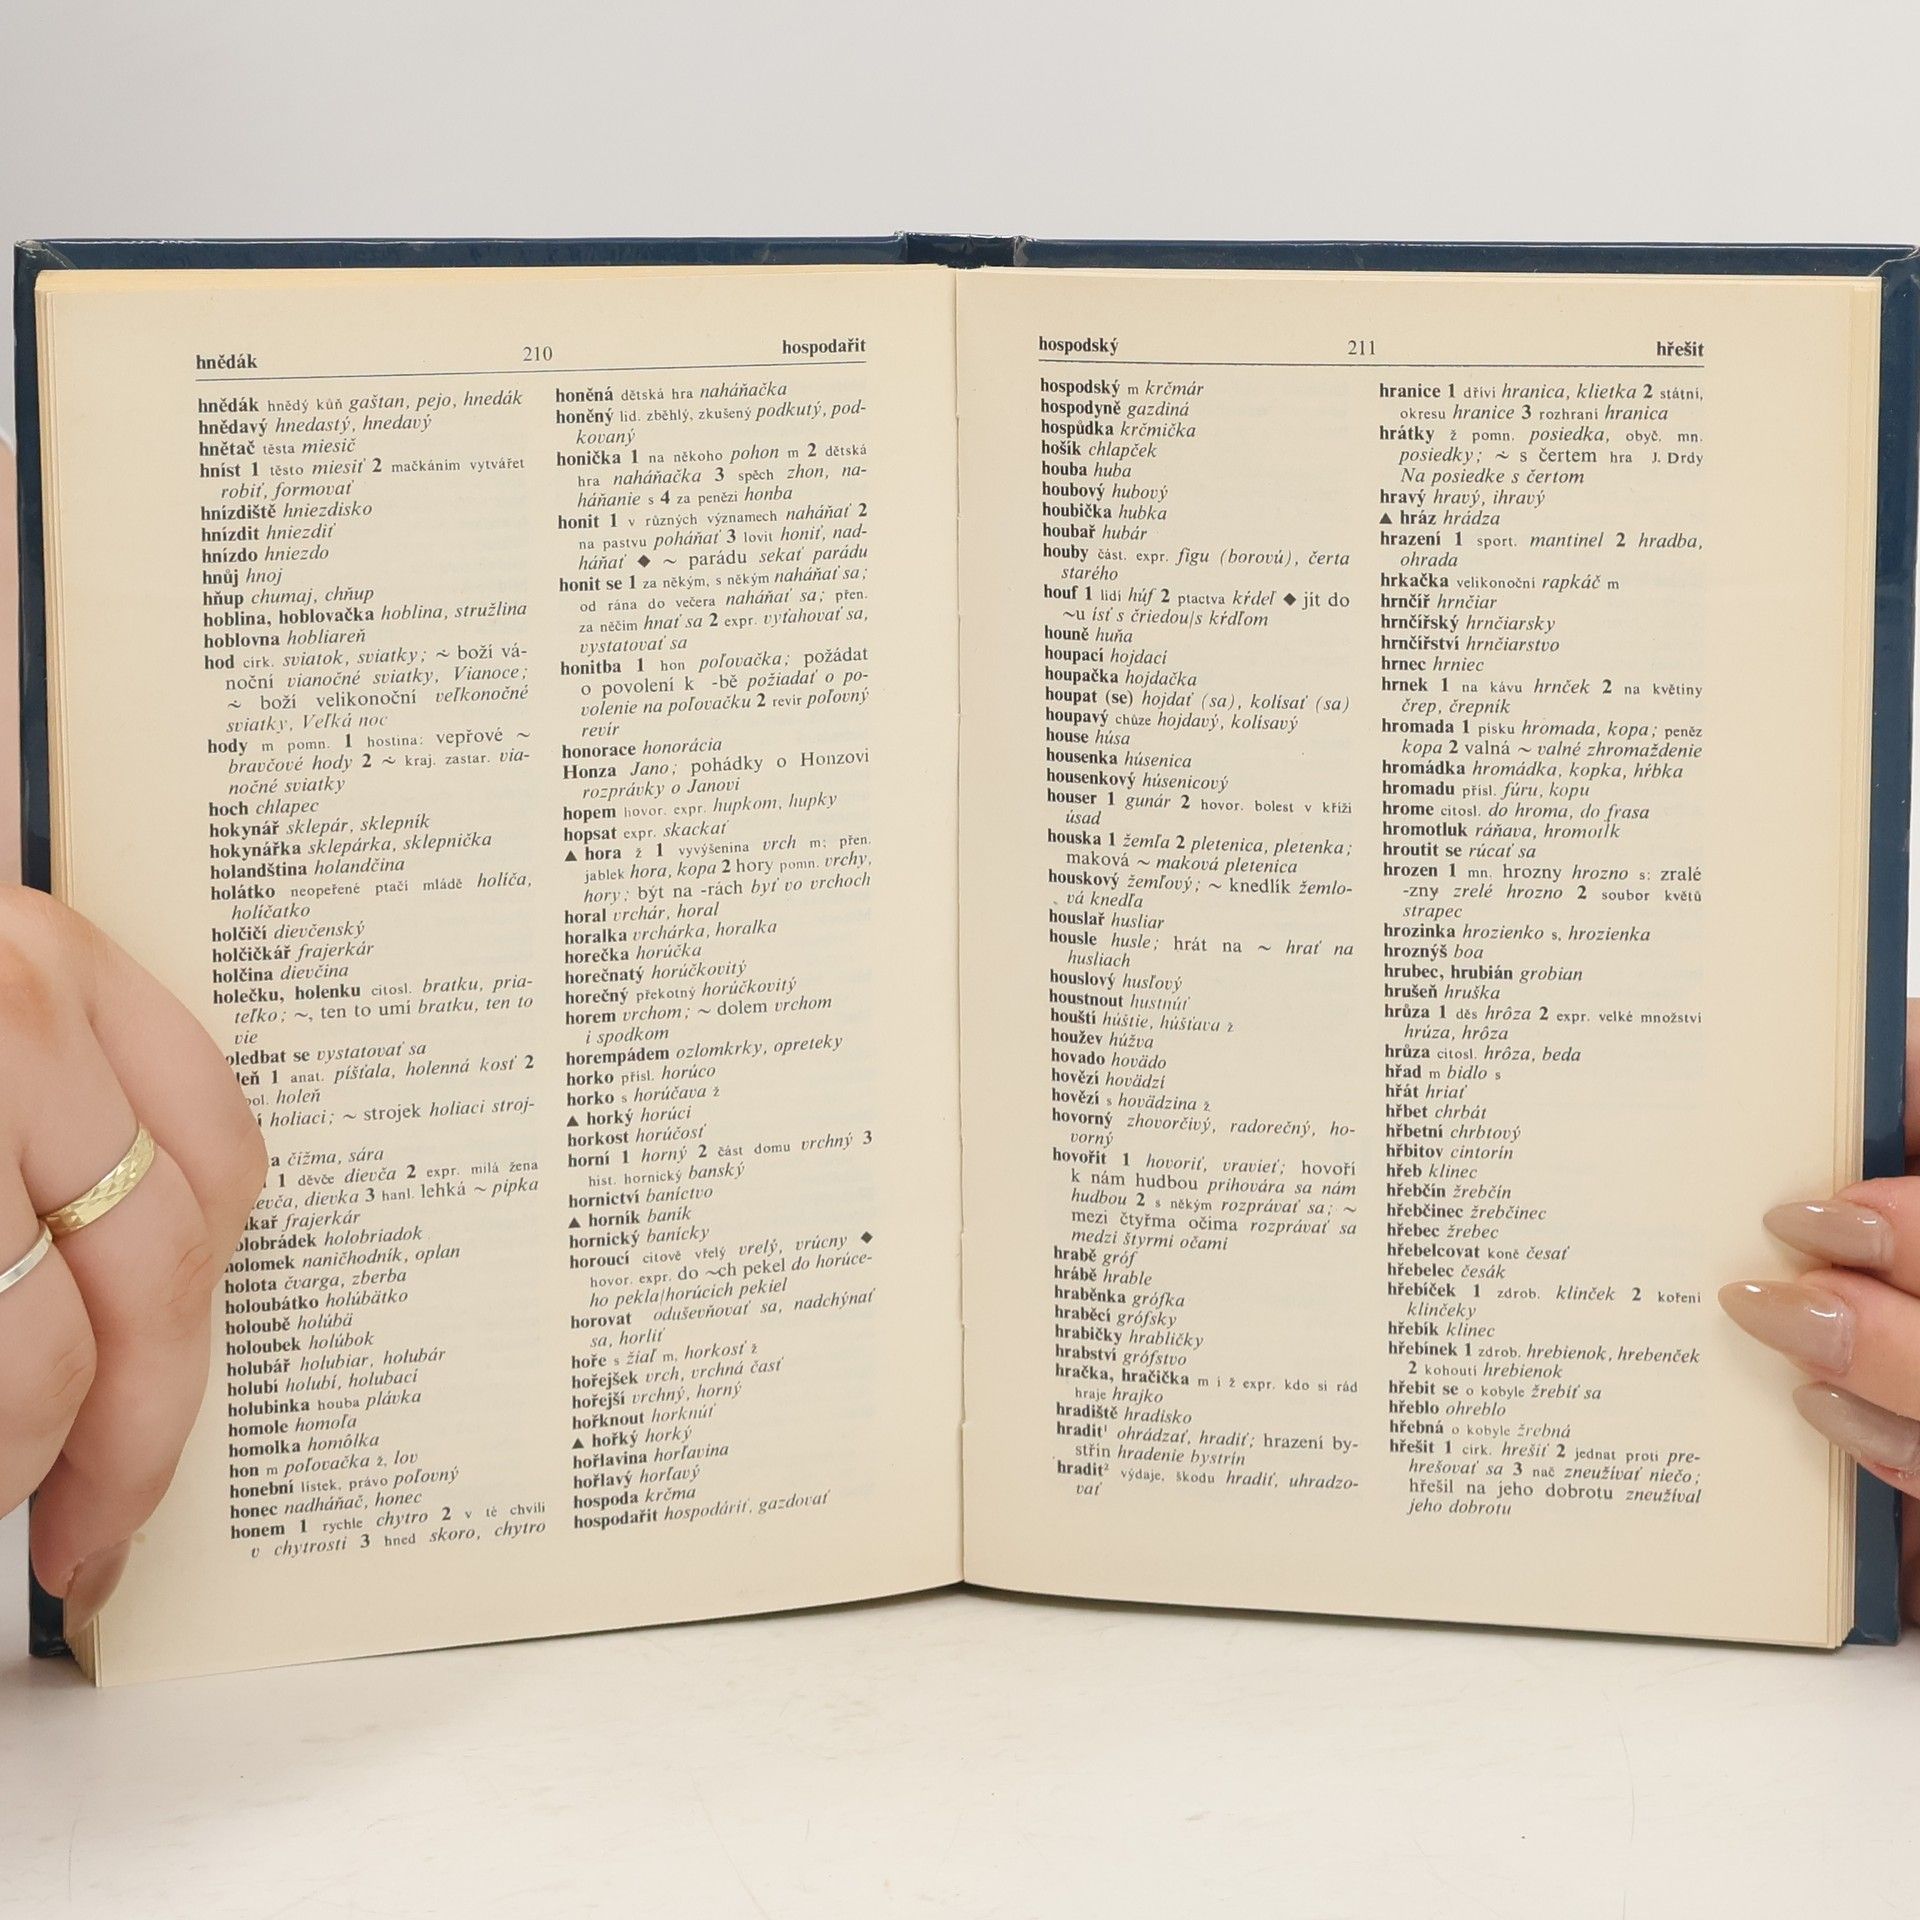 hnědák
210
hospodařit
hnědák hnědý kůň gaštan, pejo, hnedák
hnědavý hnedastý, hnedavý
hnětač těsta miesič
hníst 1 těsto miesiť 2 mačkáním vytvářet
robiť, formovať
hnízdiště hniezdisko
hnízdit hniezdiť
hnízdo hniezdo
hnůj hnoj
hňup chumaj, chňup
hoblina, hoblovačka hoblina, stružlina
hoblovna hobliareň
hod círk. sviatok, sviatky; ~ boží vá-
noční vianočné sviatky, Vianoce;
~ boží velikonoční veľkonočné
sviatky, Veľká noc
hody m pomn. 1 hostina: vepřové ~
bravčové hody 2 ~ kraj. zastar. via-
nočné sviatky
hoch chlapec
hokynář sklepár, sklepník
hokynářka sklepárka, sklepnička
holandština holandčina
holátko neopeřené ptačí mládě holíča,
holíčatko
holčičí dievčenský
holčičkář frajerkár
holčina dievčina
holečku, holenku citosl. bratku, pria-
teľko; ~, ten to umí bratku, ten to
vie
oledbat se vystatovať sa
leň 1 anat. píšťala, holenná kosť 2
pol. holeň
í holiaci; ~ strojek holiaci stroj-
a čižma, sára
1 děvče dievča 2 expr. milá žena
evča, dievka 3 hanl. lehká ~ pipka
kař frajerkár
olobrádek holobriadok
holomek naničhodník, oplan
holota čvarga, zberba
holoubátko holúbätko
holoubě holúbä
holoubek holúbok
holubář holubiar, holubár
holubí holubí, holubací
holubinka houba plávka
homole homoľa
homolka homôlka
hon m poľovačka ž, lov
honební lístek, právo poľovný
honec nadháňač, honec
honem 1 rychle chytro 2 v té chvíli
v chytrosti 3 hned skoro, chytro
honěná dětská hra naháňačka
honěný lid. zběhlý, zkušený podkutý, pod-
kovaný
honička 1 na někoho pohon m 2 dětská
hra naháňačka 3 spěch zhon, na-
háňanie s 4 za penězi honba
honit 1 v různých významech naháňať 2
na pastvu poháňať 3 lovit honiť, nad-
háňať ◆ ~ parádu sekať parádu
honit se 1 za někým, s někým naháňať sa;
od rána do večera naháňať sa; přen.
za něčím hnať sa 2 expr. vyťahovať sa,
vystatovať sa
honitba 1 hon poľovačka; požádat
o povolení k -bě požiadať o po-
volenie na poľovačku 2 revír poľovný
revír
honorace honorácia
Honza Jano; pohádky o Honzovi
rozprávky o Janovi
hopem hovor. expr. hupkom, hupky
hopsat expr. skackať
▲ hora ž 1 vyvýšenina vrch m; přen.
jablek hora, kopa 2 hory pomn. vrchy,
hory; být na -rách byť vo vrchoch
horal vrchár, horal
horalka vrchárka, horalka
horečka horúčka
horečnatý horúčkovitý
horečný překotný horúčkovitý
horem vrchom; ~ dolem vrchom
i spodkom
horempádem ozlomkrky, opreteky
horko přísl. horúco
horko s horúčava ž
▲ horký horúci
horkost horúčosť
horní 1 horný 2 část domu vrchný 3
hist. hornický banský
hornictví baníctvo
▲ horník baník
hornický banícky
horoucí citově vřelý vrelý, vrúcny ◆
hovor. expr. do ~ch pekel do horúce-
ho pekla|horúcich pekiel
horovat oduševňovať sa, nadchýnať
sa, horliť
hoře s žiaľ m, horkosť ž
hořejšek vrch, vrchná časť
hořejší vrchný, horný
hořknout horknúť
▲ hořký horký
hořlavina horľavina
hořlavý horľavý
hospoda krčma
hospodařit hospodáriť, gazdovať
hospodský
211
hřešit
hospodský m krčmár
hospodyně gazdiná
hospůdka krčmička
hošík chlapček
houba huba
houbový hubový
houbička hubka
houbař hubár
houby část. expr. figu (borovú), čerta
starého
houf 1 lidí húf 2 ptactva kŕdeľ ◆ jít do
~u ísť s čriedou|s kŕdľom
houně huňa
houpací hojdací
houpačka hojdačka
houpat (se) hojdať (sa), kolísať (sa)
houpavý chůze hojdavý, kolísavý
house húsa
housenka húsenica
housenkový húsenicový
houser 1 gunár 2 hovor. bolest v kříži
úsad
houska 1 žemľa 2 pletenica, pletenka;
maková ~ maková pletenica
houskový žemľový; ~ knedlík žemľo-
vá knedľa
houslař husliar
housle husle; hrát na ~ hrať na
husliach
houslový husľový
houstnout hustnúť
houští húštie, húšťava ž
houžev húžva
hovado hovädo
hovězí hovädzí
hovězí s hovädzina ž
hovorný zhovorčivý, radorečný, ho-
vorný
hovořit 1 hovoriť, vravieť; hovoří
k nám hudbou prihovára sa nám
hudbou 2 s někým rozprávať sa; ~
mezi čtyřma očima rozprávať sa
medzi štyrmi očami
hrabě gróf
hrábě hrable
hraběnka grófka
hraběcí grófsky
hrabičky hrabličky
hrabství grófstvo
hračka, hračička m i ž expr. kdo si rád
hraje hrajko
hradiště hradisko
hradit¹ ohrádzať, hradiť; hrazení by-
střin hradenie bystrín
hradit² výdaje, škodu hradiť, uhradzo-
vať
hranice 1 dříví hranica, klietka 2 státní,
okresu hranice 3 rozhraní hranica
hrátky ž pomn. posiedka, obyč. mn.
posiedky; ~ s čertem hra J. Drdy
Na posiedke s čertom
hravý hravý, ihravý
▲ hráz hrádza
hrazení 1 sport. mantinel 2 hradba,
ohrada
hrkačka velikonoční rapkáč m
hrnčíř hrnčiar
hrnčířský hrnčiarsky
hrnčířství hrnčiarstvo
hrnec hrniec
hrnek 1 na kávu hrnček 2 na květiny
črep, črepník
hromada 1 písku hromada, kopa; peněz
kopa 2 valná ~ valné zhromaždenie
hromádka hromádka, kopka, hŕbka
hromadu přísl. fúru, kopu
hrome citosl. do hroma, do frasa
hromotluk ráňava, hromotĺk
hroutit se rúcať sa
hrozen 1 mn. hrozny hrozno s: zralé
-zny zrelé hrozno 2 soubor květů
strapec
hrozinka hrozienko s, hrozienka
hroznýš boa
hrubec, hrubián grobian
hrušeň hruška
hrůza 1 děs hrôza 2 expr. velké množství
hrúza, hrôza
hrůza citosl. hrôza, beda
hřad m bidlo s
hřát hriať
hřbet chrbát
hřbetní chrbtový
hřbitov cintorín
hřeb klinec
hřebčín žrebčín
hřebčinec žrebčinec
hřebec žrebec
hřebelcovat koně česať
hřebelec česák
hřebíček 1 zdrob. klinček 2 koření
klinčeky
hřebík klinec
hřebínek 1 zdrob. hrebienok, hrebenček
2 kohoutí hrebienok
hřebit se o kobyle žrebiť sa
hřeblo ohreblo
hřebná o kobyle žrebná
hřešit 1 círk. hrešiť 2 jednat proti pre-
hrešovať sa 3 nač zneužívať niečo;
hřešil na jeho dobrotu zneužíval
jeho dobrotu